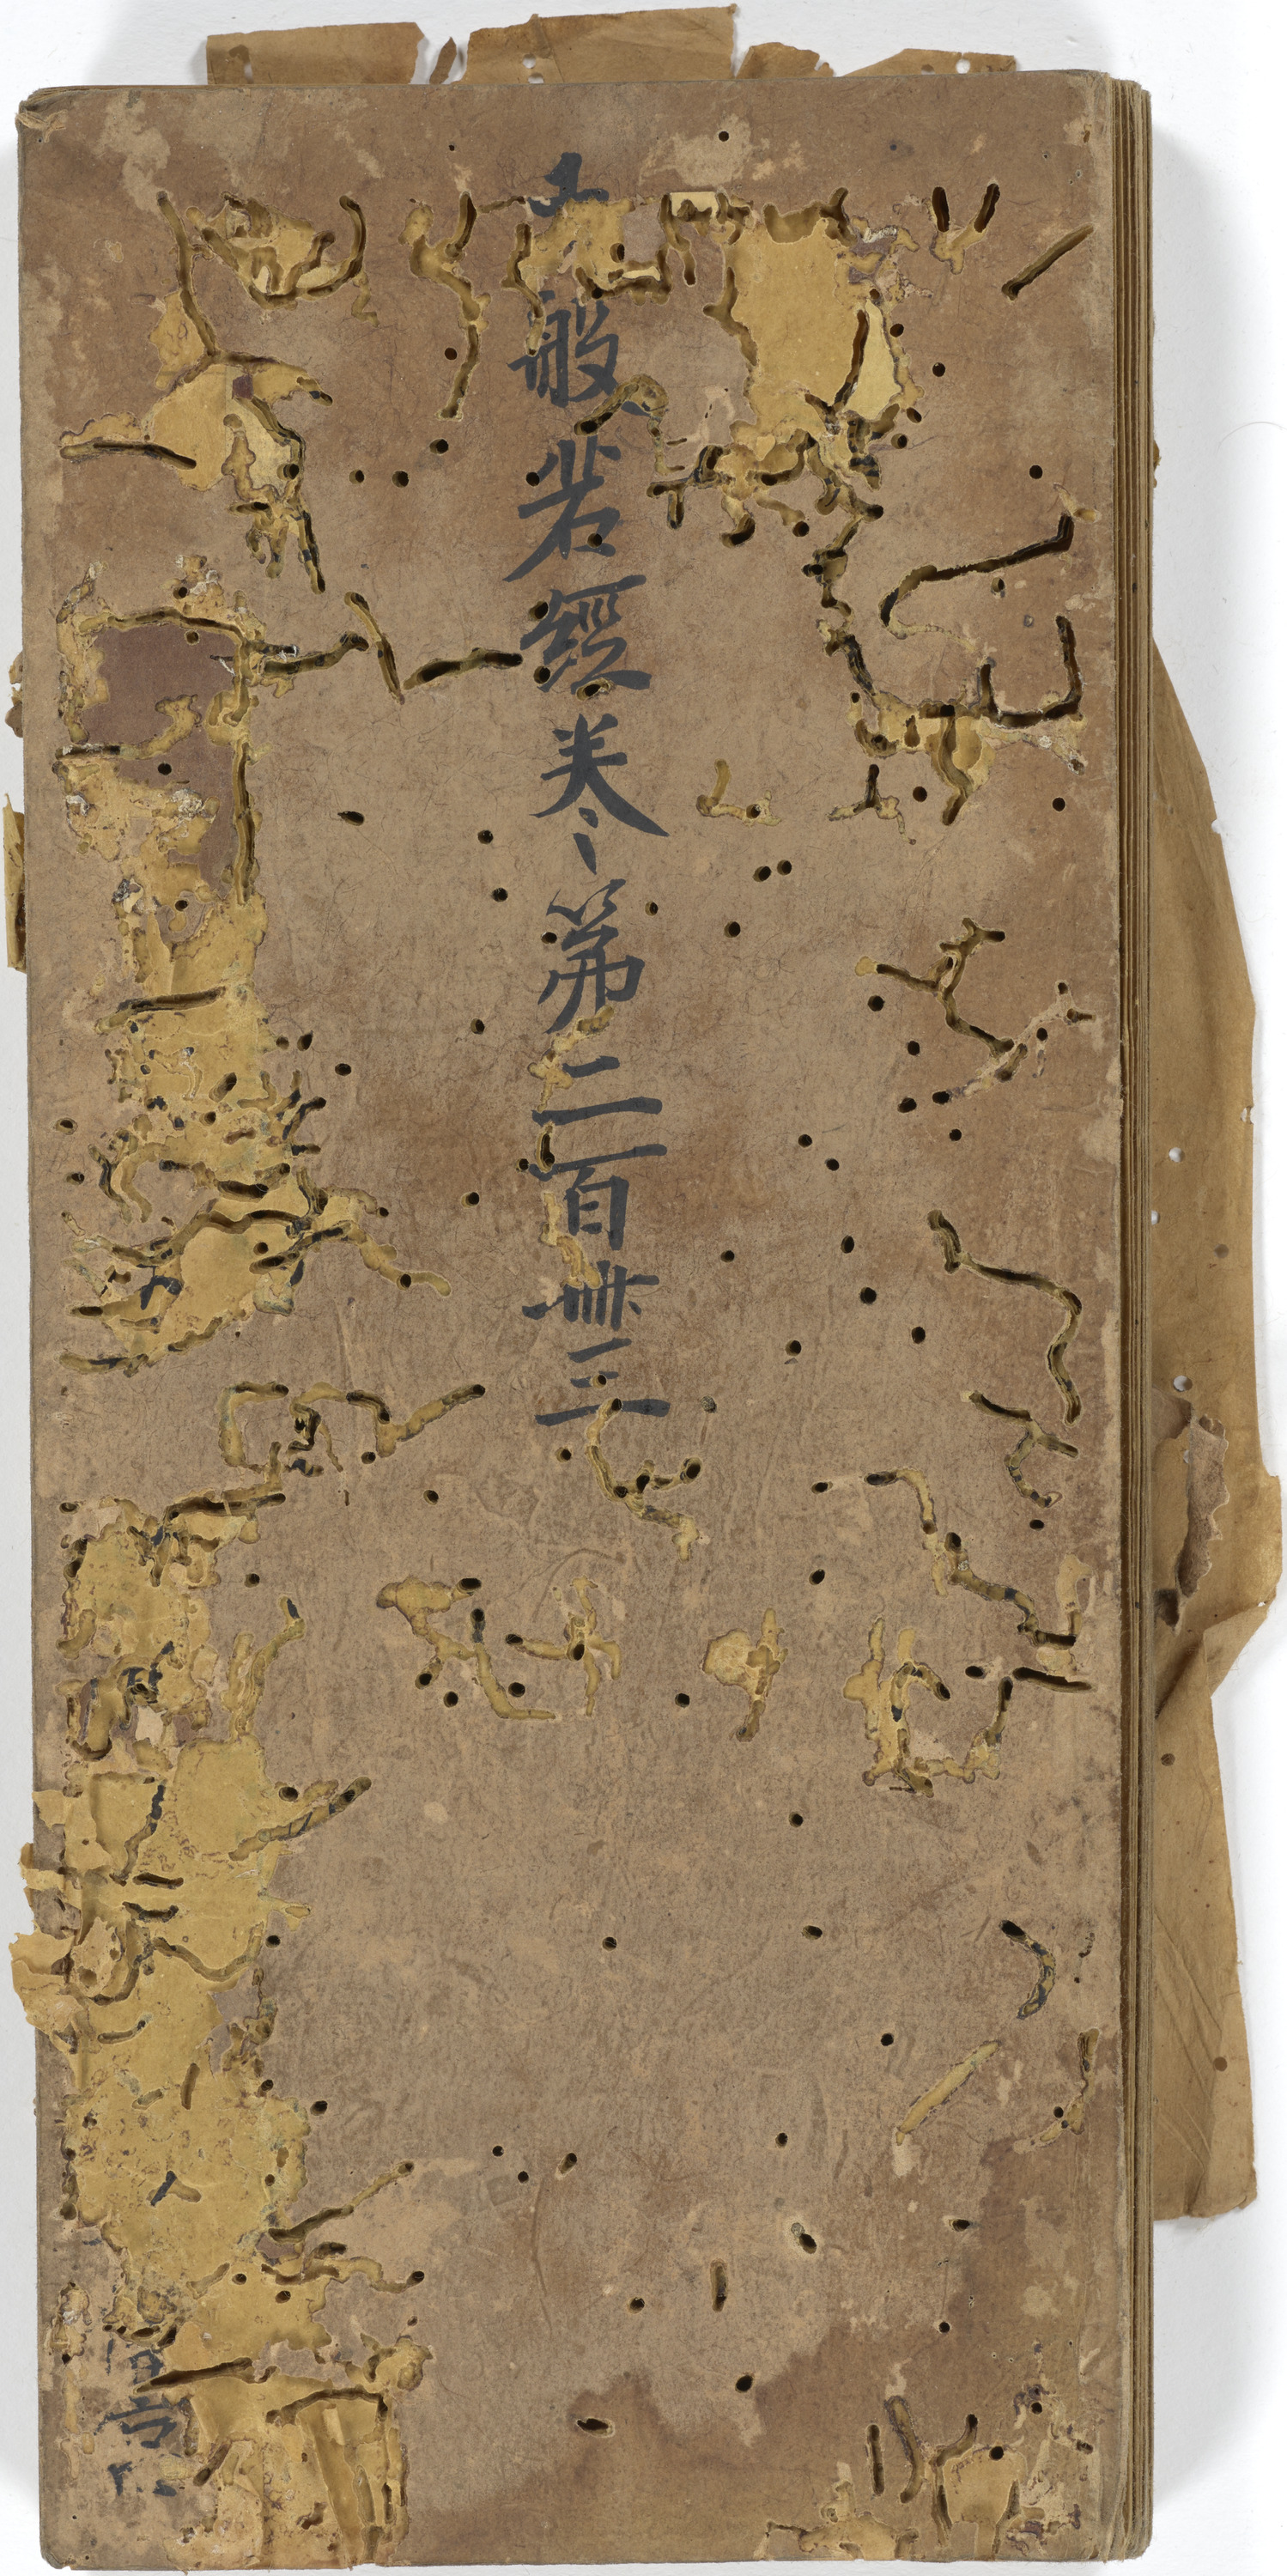 大般若經卷第二百卌三